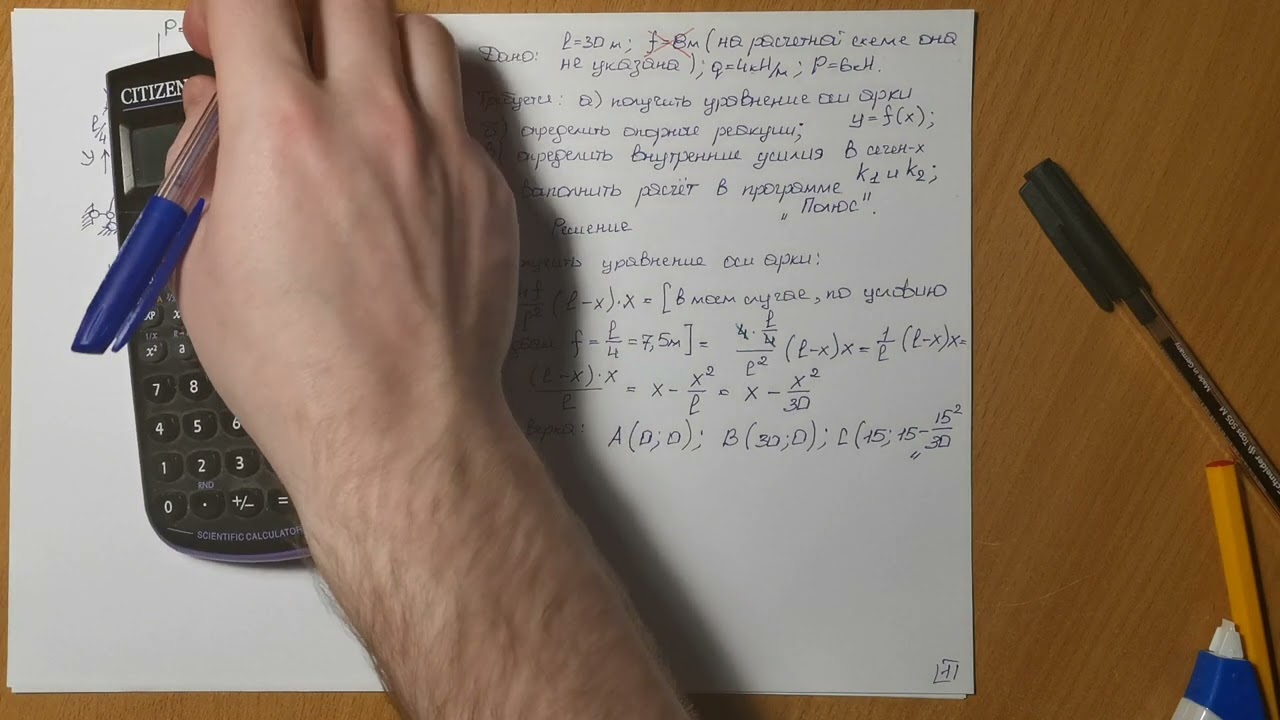 P=
Дано: l=30 м; f=8м (на расчетной схеме она
не указана); q=4кН/м; P=6кН.
Требуется: а) получить уравнение оси арки
y=f(x);
б) определить опорные реакции;
определить внутренние усилия в сечен-х
k1 и k2;
выполнить расчёт в программе
"Полюс".
Решение
уравнение оси арки:
4f/l² (l-x)·x = [в моем случае, по условию
f = l/4 = 7,5м] = 4·l/4/l² (l-x)x = 1/l (l-x)x =
(l-x)·x/l = x - x²/l = x - x²/30
A(0;0); B(30;0); C(15; 15-15²/30
l/4
y
CITIZEN
x²
7 8
4 5 6
1 2 3
RND
0 · +/- =
SCIENTIFIC CALCULATOR
Schneider Tops 505 M
Made in Germany
1